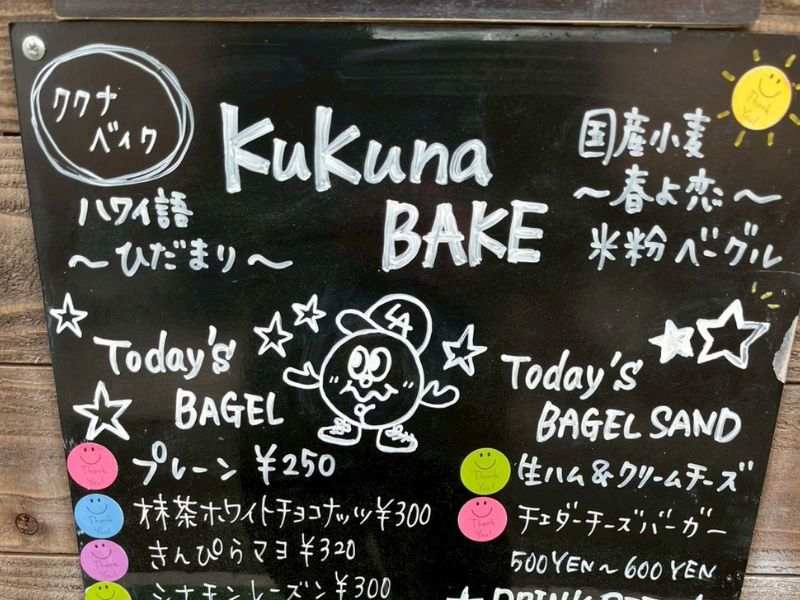 ククナ
ベイク
KuKuna
BAKE
ハワイ語
～ひだまり～
国産小麦
～春よ恋～
米粉ベーグル
Thank
You!
LA
Today's
BAGEL
Thank
You!
プレーン ¥250
Thank
You!
抹茶ホワイトチョコナッツ¥300
Thank
You!
きんぴらマヨ¥320
シナモンレーズン¥300
Today's
BAGEL SAND
Thank
You!
生ハム&クリームチーズ
Thank
You!
チェダーチーズバーガー
500YEN～600YEN